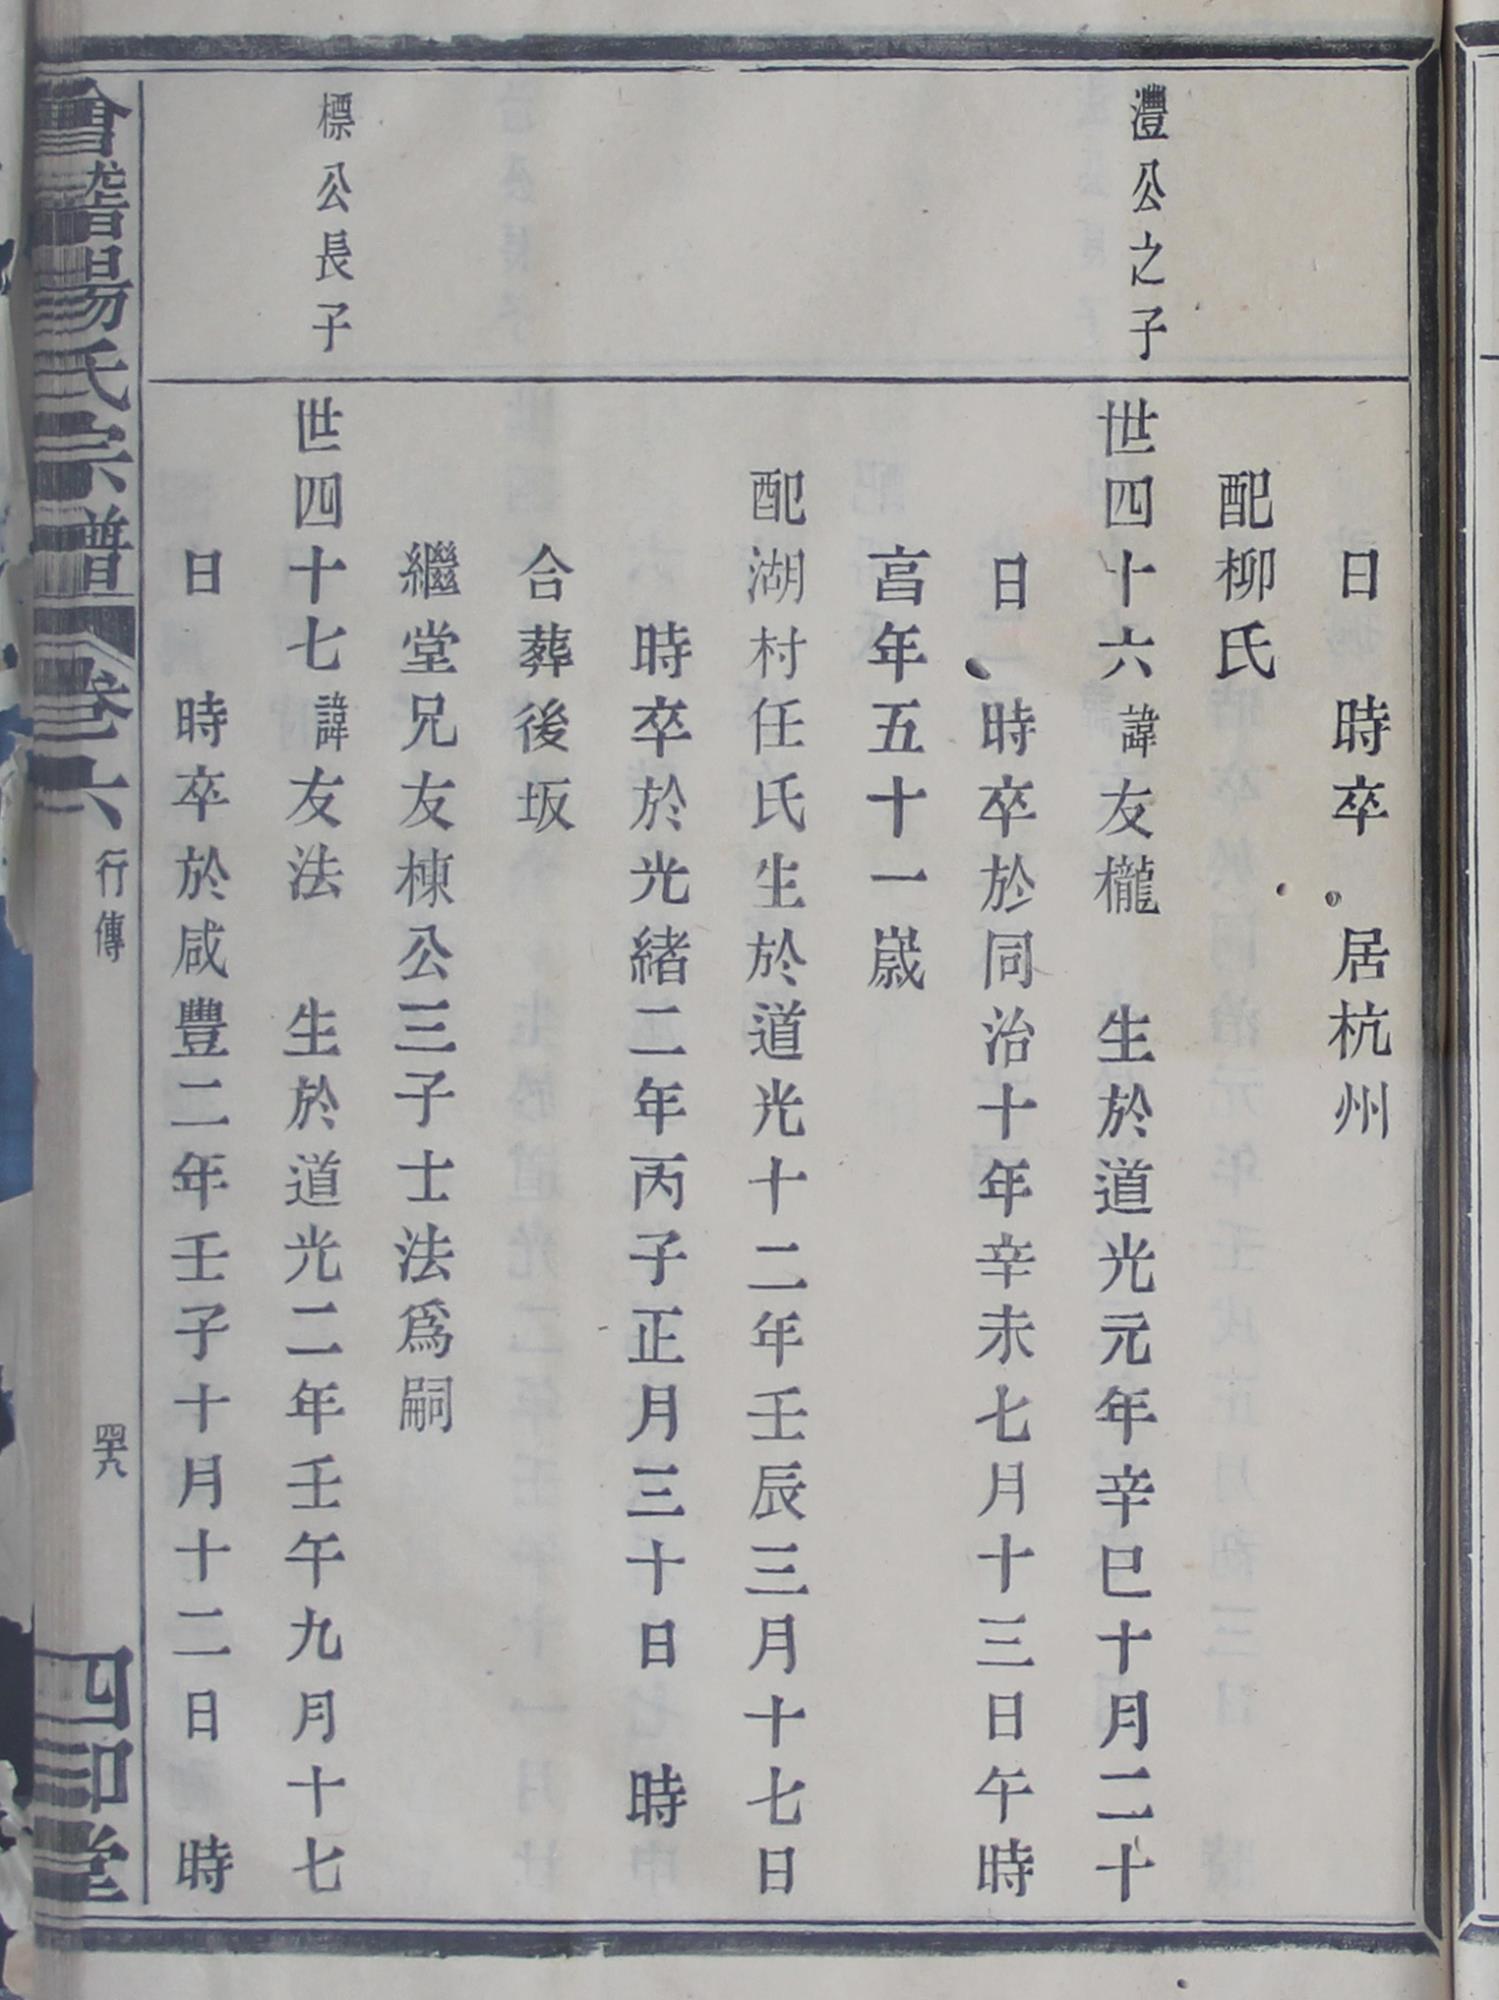 日　時卒　居杭州
配柳氏
灃公之子
世四十六諱友櫳　生於道光元年辛巳十月二十
日　時卒於同治十年辛未七月十三日午時
亯年五十一嵗
配湖村任氏生於道光十二年壬辰三月十七日
時卒於光緒二年丙子正月三十日　時
合葬後坂
繼堂兄友棟公三子士法爲嗣
標公長子
世四十七諱友法　生於道光二年壬午九月十七
日　時卒於咸豐二年壬子十月十二日　時
會稽楊氏宗譜 卷六 行傳 四十八 四知堂